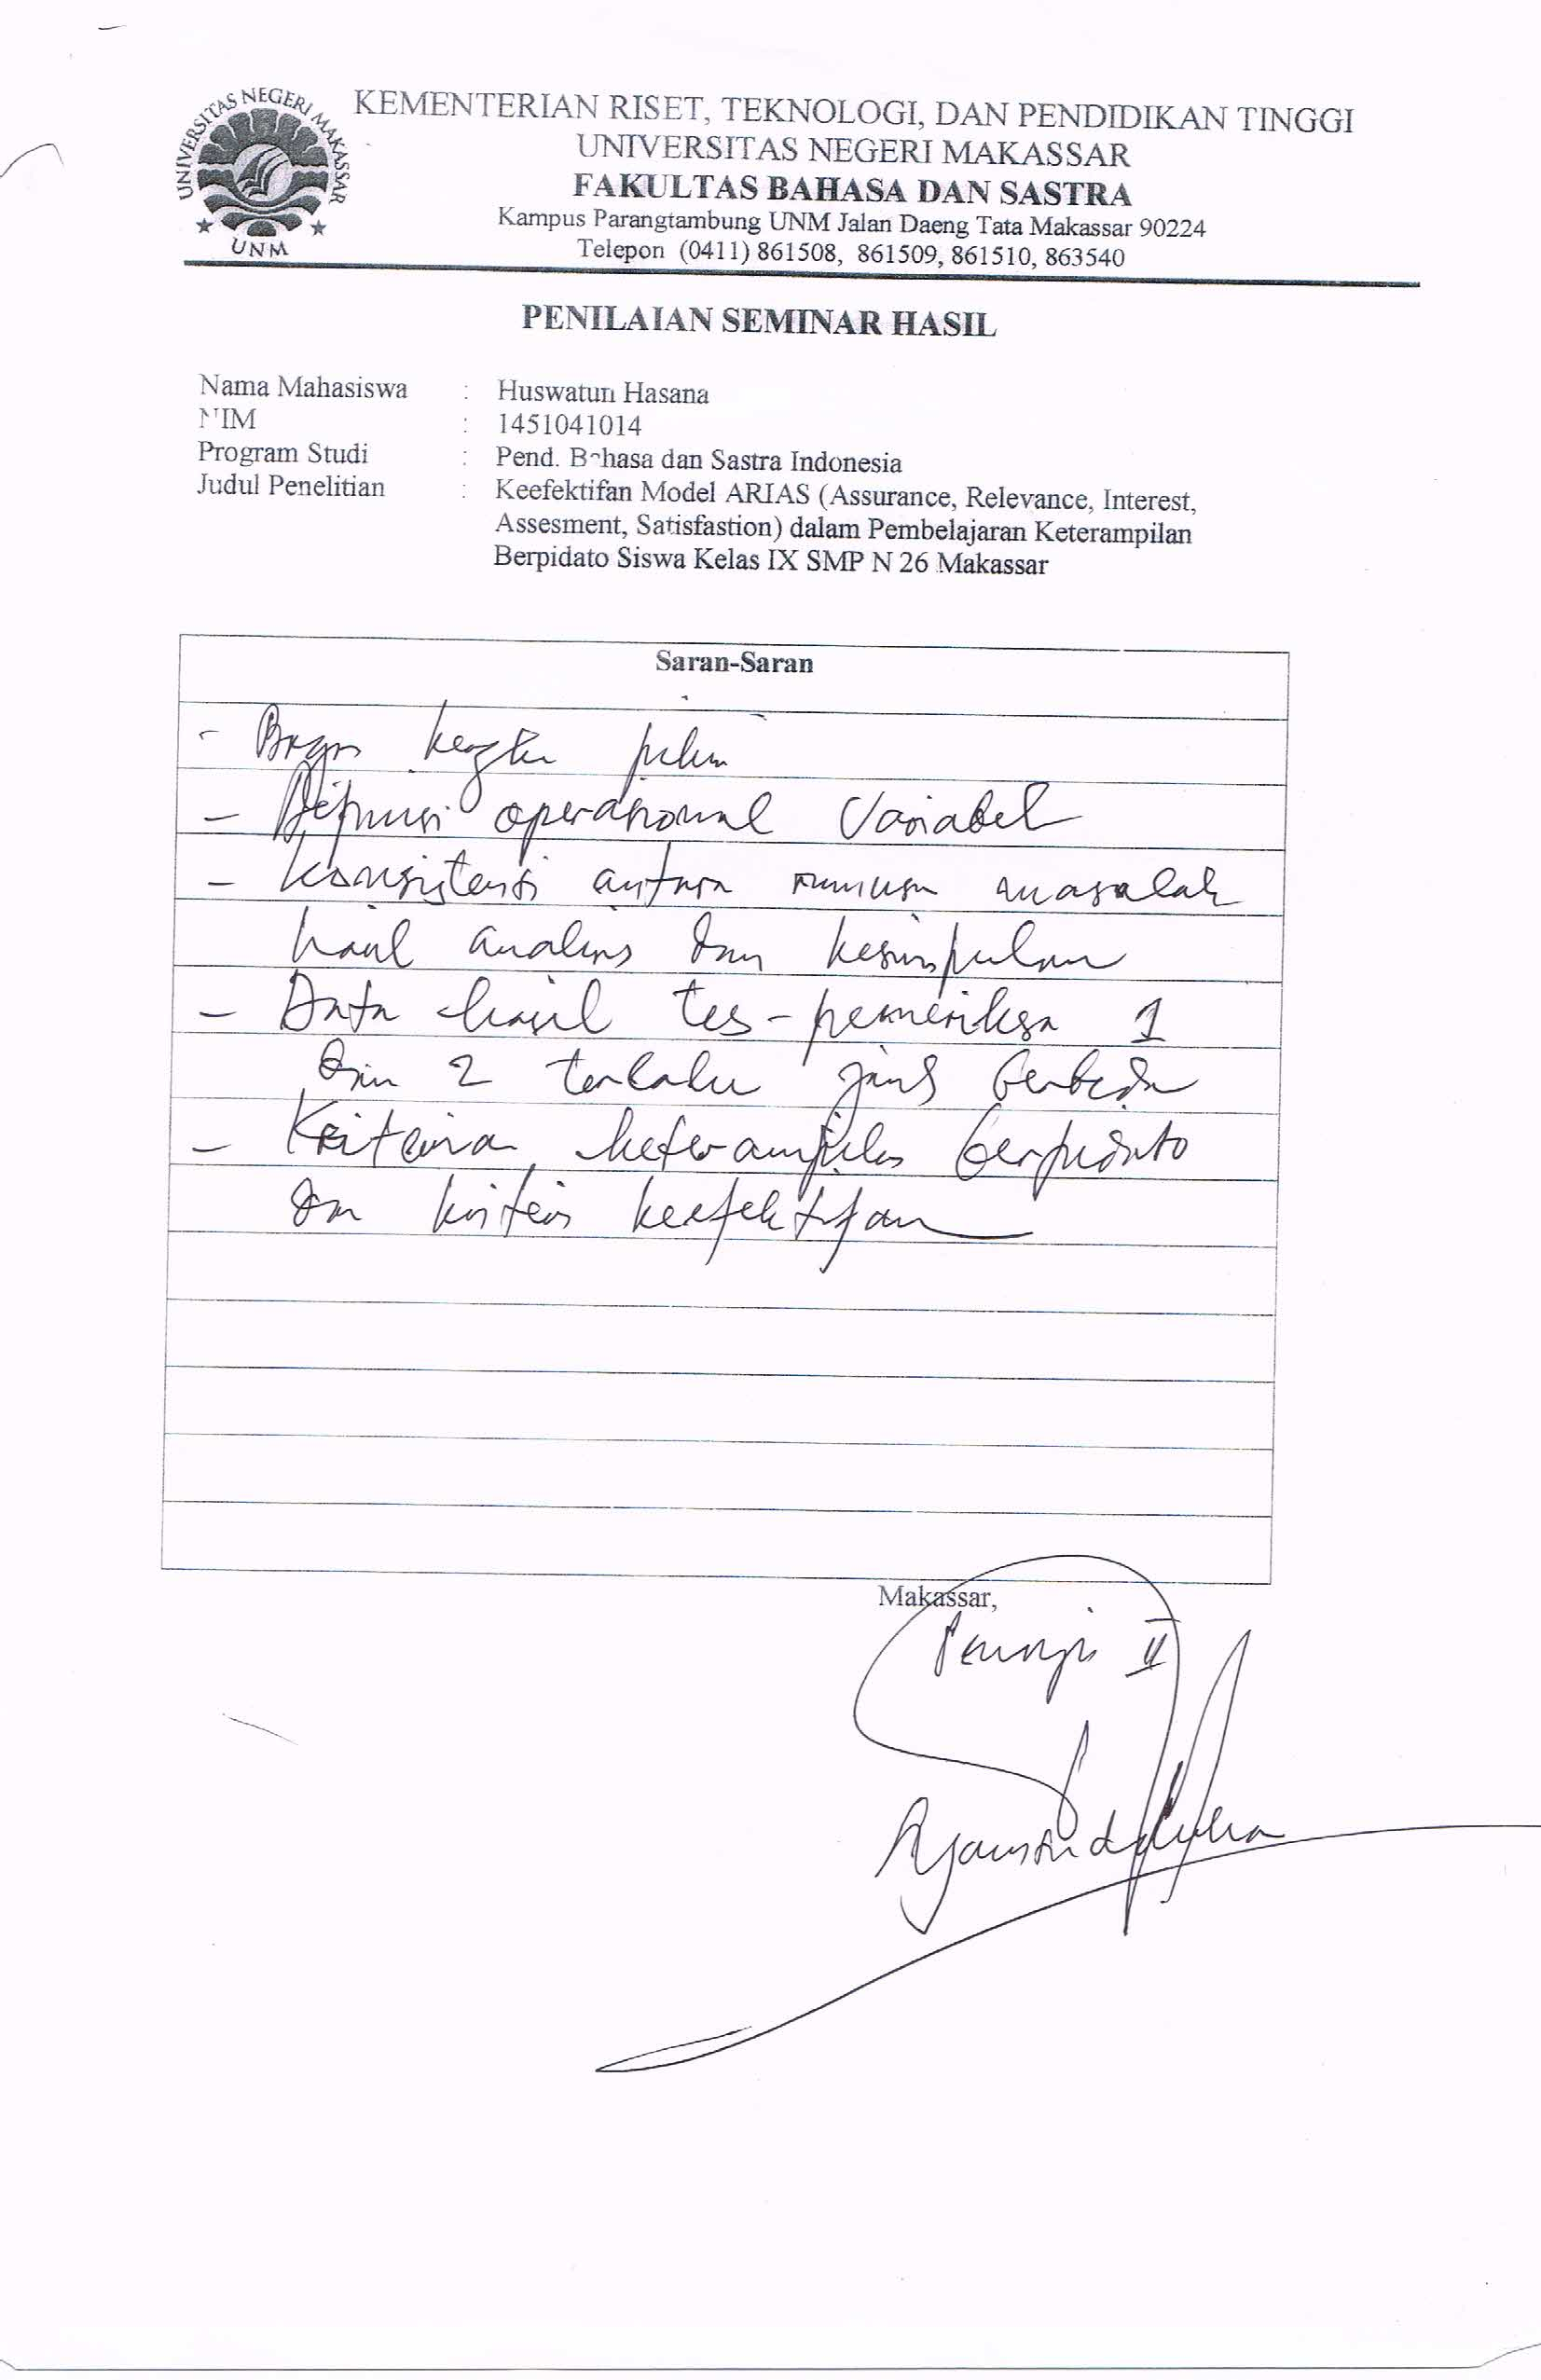 UNIVERSITAS NEGERI MAKASSAR
UNM
KEMENTERIAN RISET, TEKNOLOGI, DAN PENDIDIKAN TINGGI
UNIVERSITAS NEGERI MAKASSAR
FAKULTAS BAHASA DAN SASTRA
Kampus Parangtambung UNM Jalan Daeng Tata Makassar 90224
Telepon (0411) 861508, 861509, 861510, 863540
PENILAIAN SEMINAR HASIL
Nama Mahasiswa : Huswatun Hasana
NIM : 1451041014
Program Studi : Pend. Bahasa dan Sastra Indonesia
Judul Penelitian : Keefektifan Model ARIAS (Assurance, Relevance, Interest,
Assesment, Satisfastion) dalam Pembelajaran Keterampilan
Berpidato Siswa Kelas IX SMP N 26 Makassar
Saran-Saran
- Bagan kerangka pikir
- Definisi operasional Variabel
- Konsistensi antara rumusan masalah
hasil analisis dan kesimpulan
- Data hasil tes - pemeriksa 1
dan 2 terlalu jauh berbeda
- Kriteria keterampilan berpidato
dan kriteria keefektifan
Makassar,
Penguji II